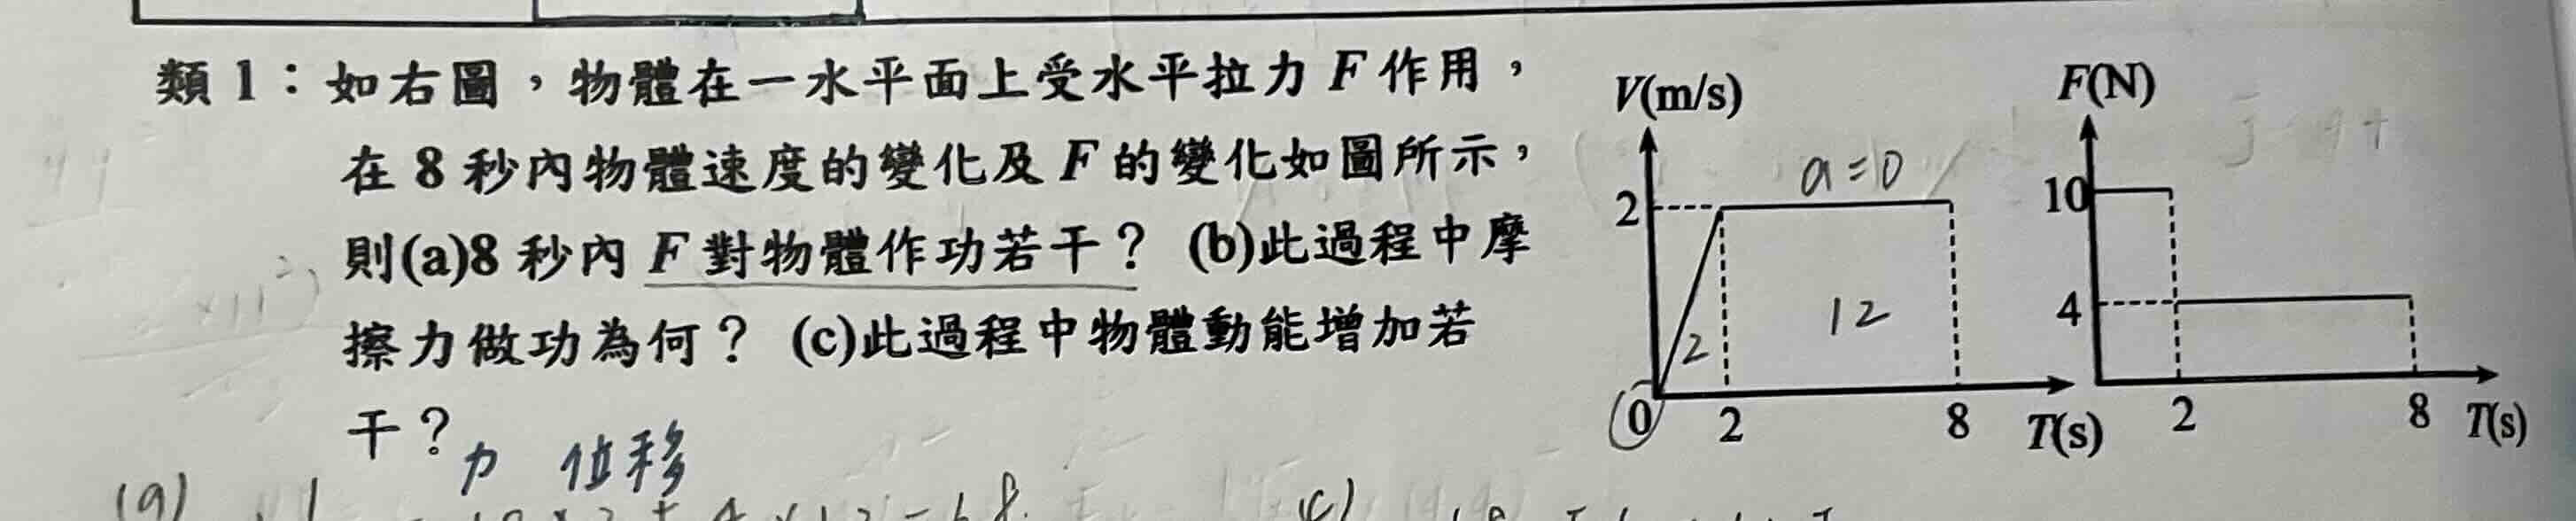 類1：如右圖，物體在一水平面上受水平拉力F作用，
在8秒內物體速度的變化及F的變化如圖所示，
則(a)8秒內F對物體作功若干？ (b)此過程中摩
擦力做功為何？ (c)此過程中物體動能增加若
干？
力 位移
(a)
(c)
V(m/s)
a=0
2
2
12
0 2 8 T(s)
F(N)
10
4
2 8 T(s)